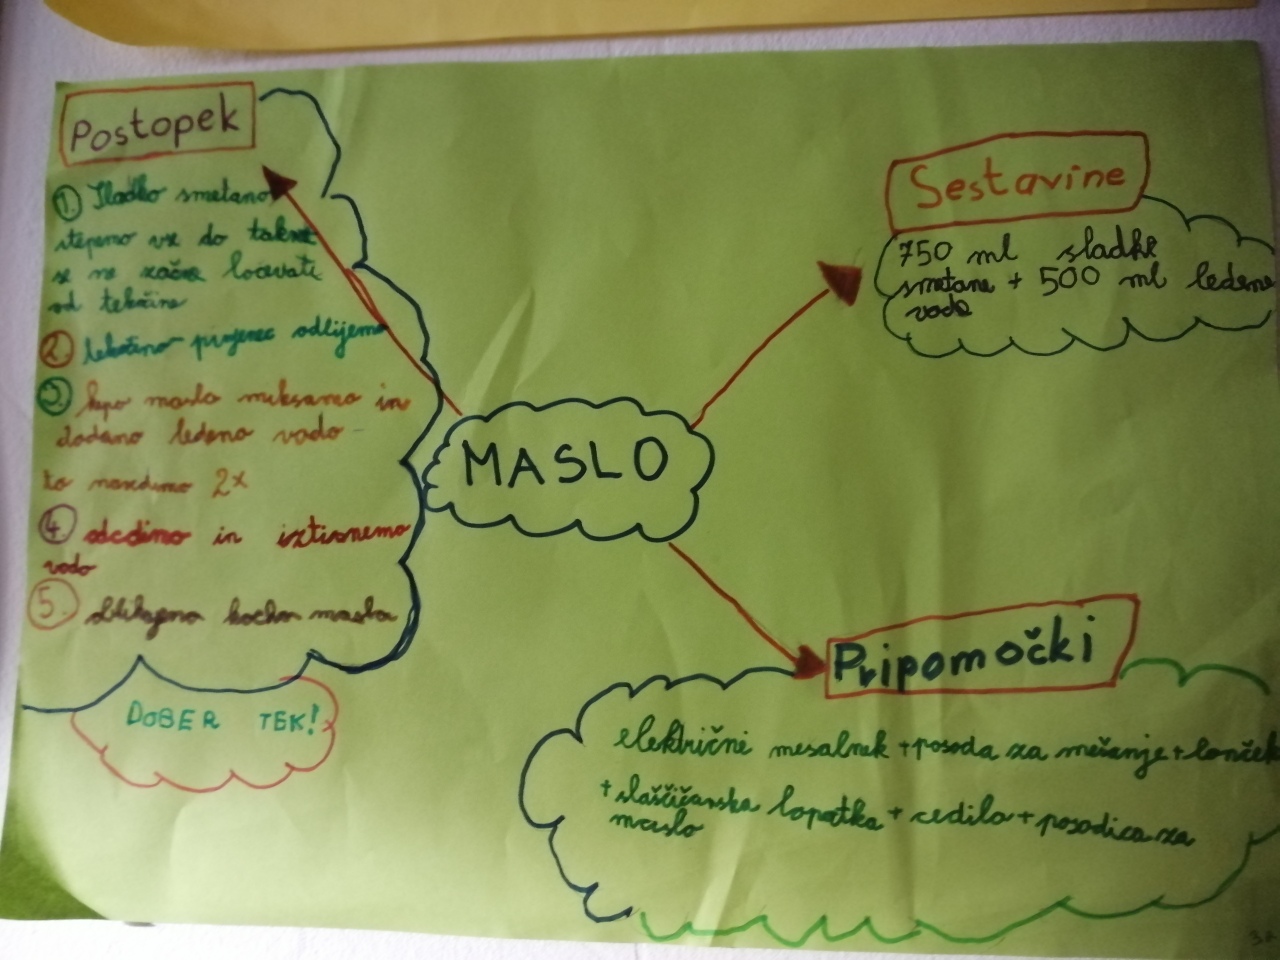 Postopek
1. Sladko smetano
stepemo vse do takrat
se ne začne ločevati
od tekočine
2. tekočino pinjenec odlijemo
3. kepo masla miksamo in
dodamo ledeno vodo
to naredimo 2x
4. odcdimo in iztisnemo
vodo
5. oblikujemo kocko masla
DOBER TEK!
MASLO
Sestavine
750 ml sladke
smetane + 500 ml ledene
vode
Pripomočki
električni mešalnik + posoda za mešanje + lonček
+ slaščičarska lopatka + cedilo + posodica za
maslo